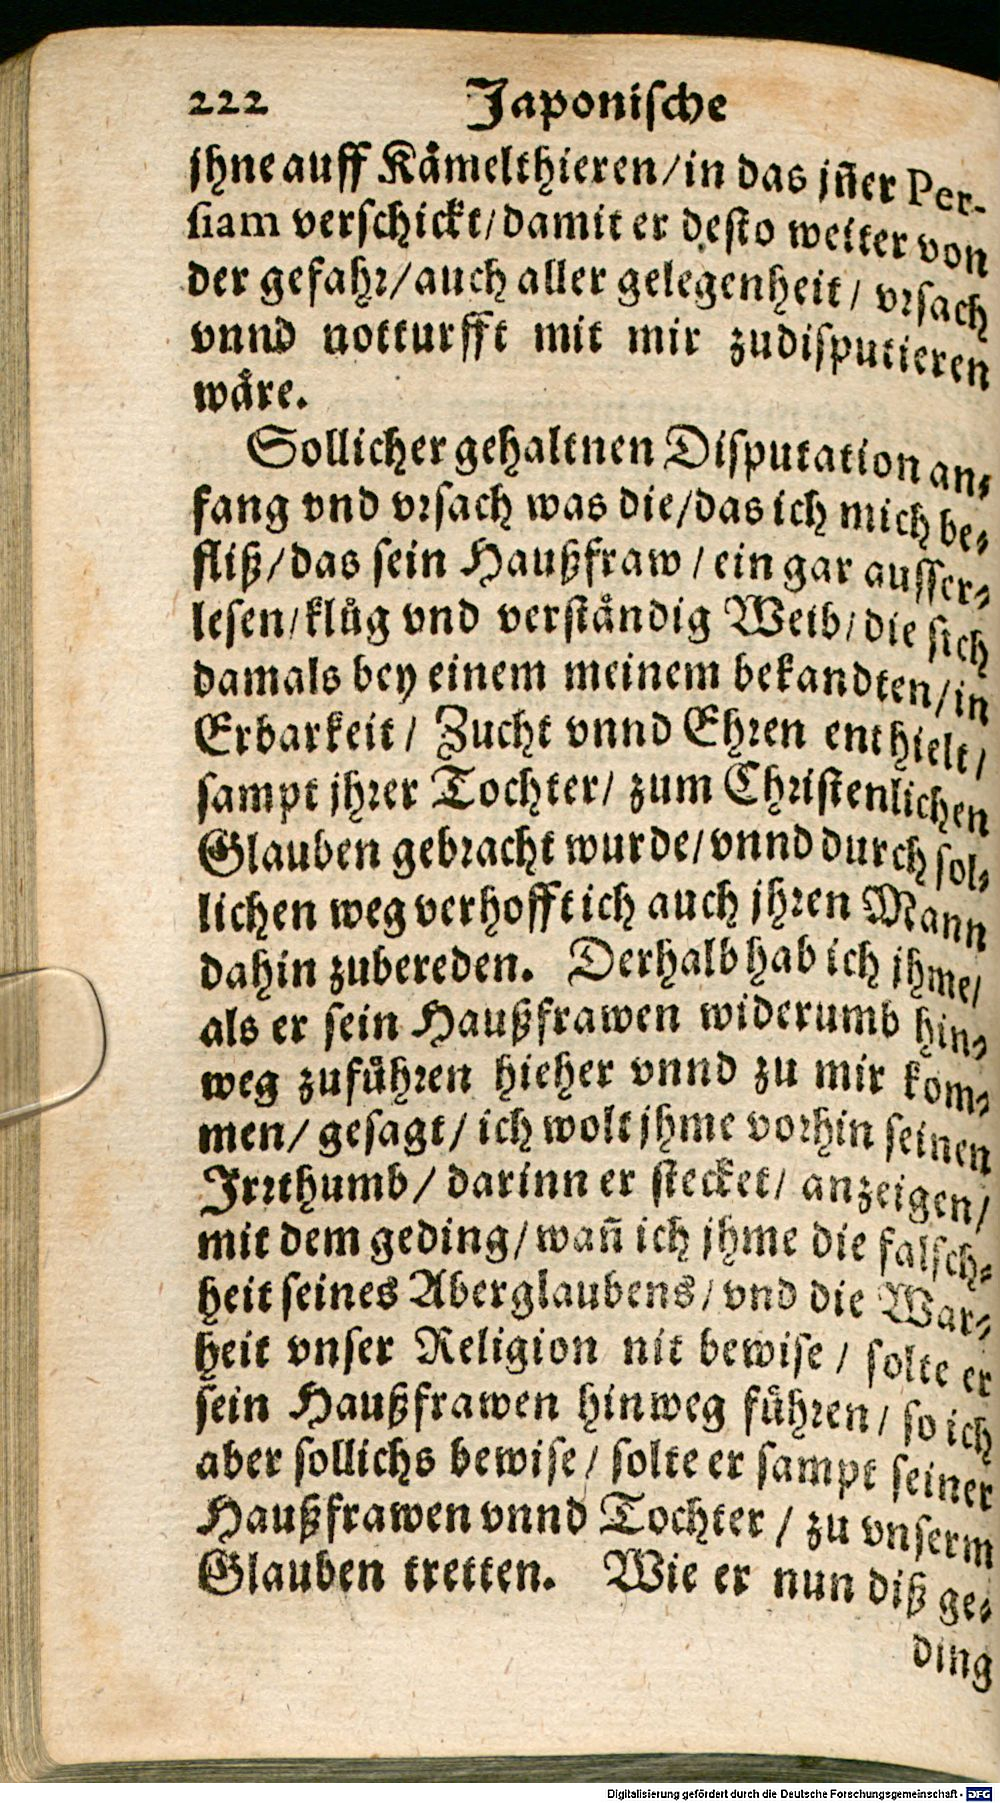 222 Japonische
jhne auff Kåmelthieren/in das jñer Per-
siam verschickt/damit er desto weiter von
der gefahr/auch aller gelegenheit/ vrsach
vnnd notturfft mit mir zudisputieren
wåre.
Sollicher gehaltnen Disputation an-
fang vnd vrsach was die/das ich mich be-
fliß/das sein Haußfraw/ein gar ausser-
lesen/klůg vnd verståndig Weib/die sich
damals bey einem meinem bekandten/in
Erbarkeit/ Zucht vnnd Ehren enthielt/
sampt jhrer Tochter/ zum Christenlichen
Glauben gebracht wurde/vnnd durch sol-
lichen weg verhofft ich auch jhren Mann
dahin zubereden. Derhalb hab ich jhme/
als er sein Haußfrawen widerumb hin-
weg zufůhren hieher vnnd zu mir kom-
men/ gesagt/ ich wolt jhme vorhin seinen
Irrthumb/ darinn er stecket/ anzeigen/
mit dem geding/wañ ich jhme die falsch-
heit seines Aberglaubens/vnd die War-
heit vnser Religion nit bewise/ solte er
sein Haußfrawen hinweg fůhren/ so ich
aber sollichs bewise/ solte er sampt seiner
Haußfrawen vnnd Tochter/ zu vnserm
Glauben tretten. Wie er nun diß ge-
ding
Digitalisierung gefördert durch die Deutsche Forschungsgemeinschaft - DFG